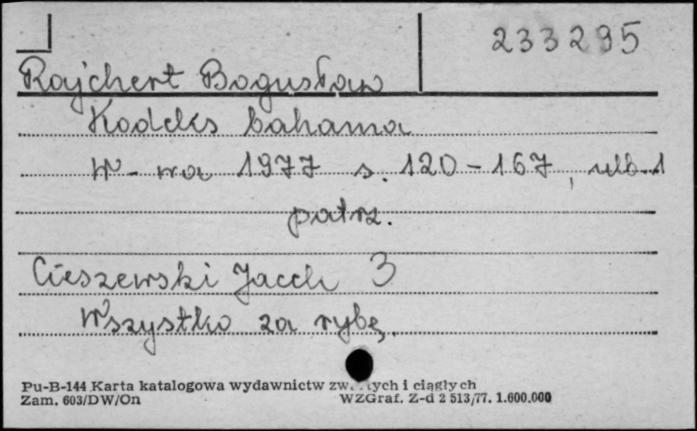 233295
Rajchert Bogusław
Kodeks bahama
W-wa 1977 s. 120-167, nlb 1
patrz.
Cieszewski Jacek 3
Wszystko za rybę.
Pu-B-144 Karta katalogowa wydawnictw zw tych i ciągłych
Zam. 603/DW/On WZGraf. Z-d 2 513/77. 1.600.000